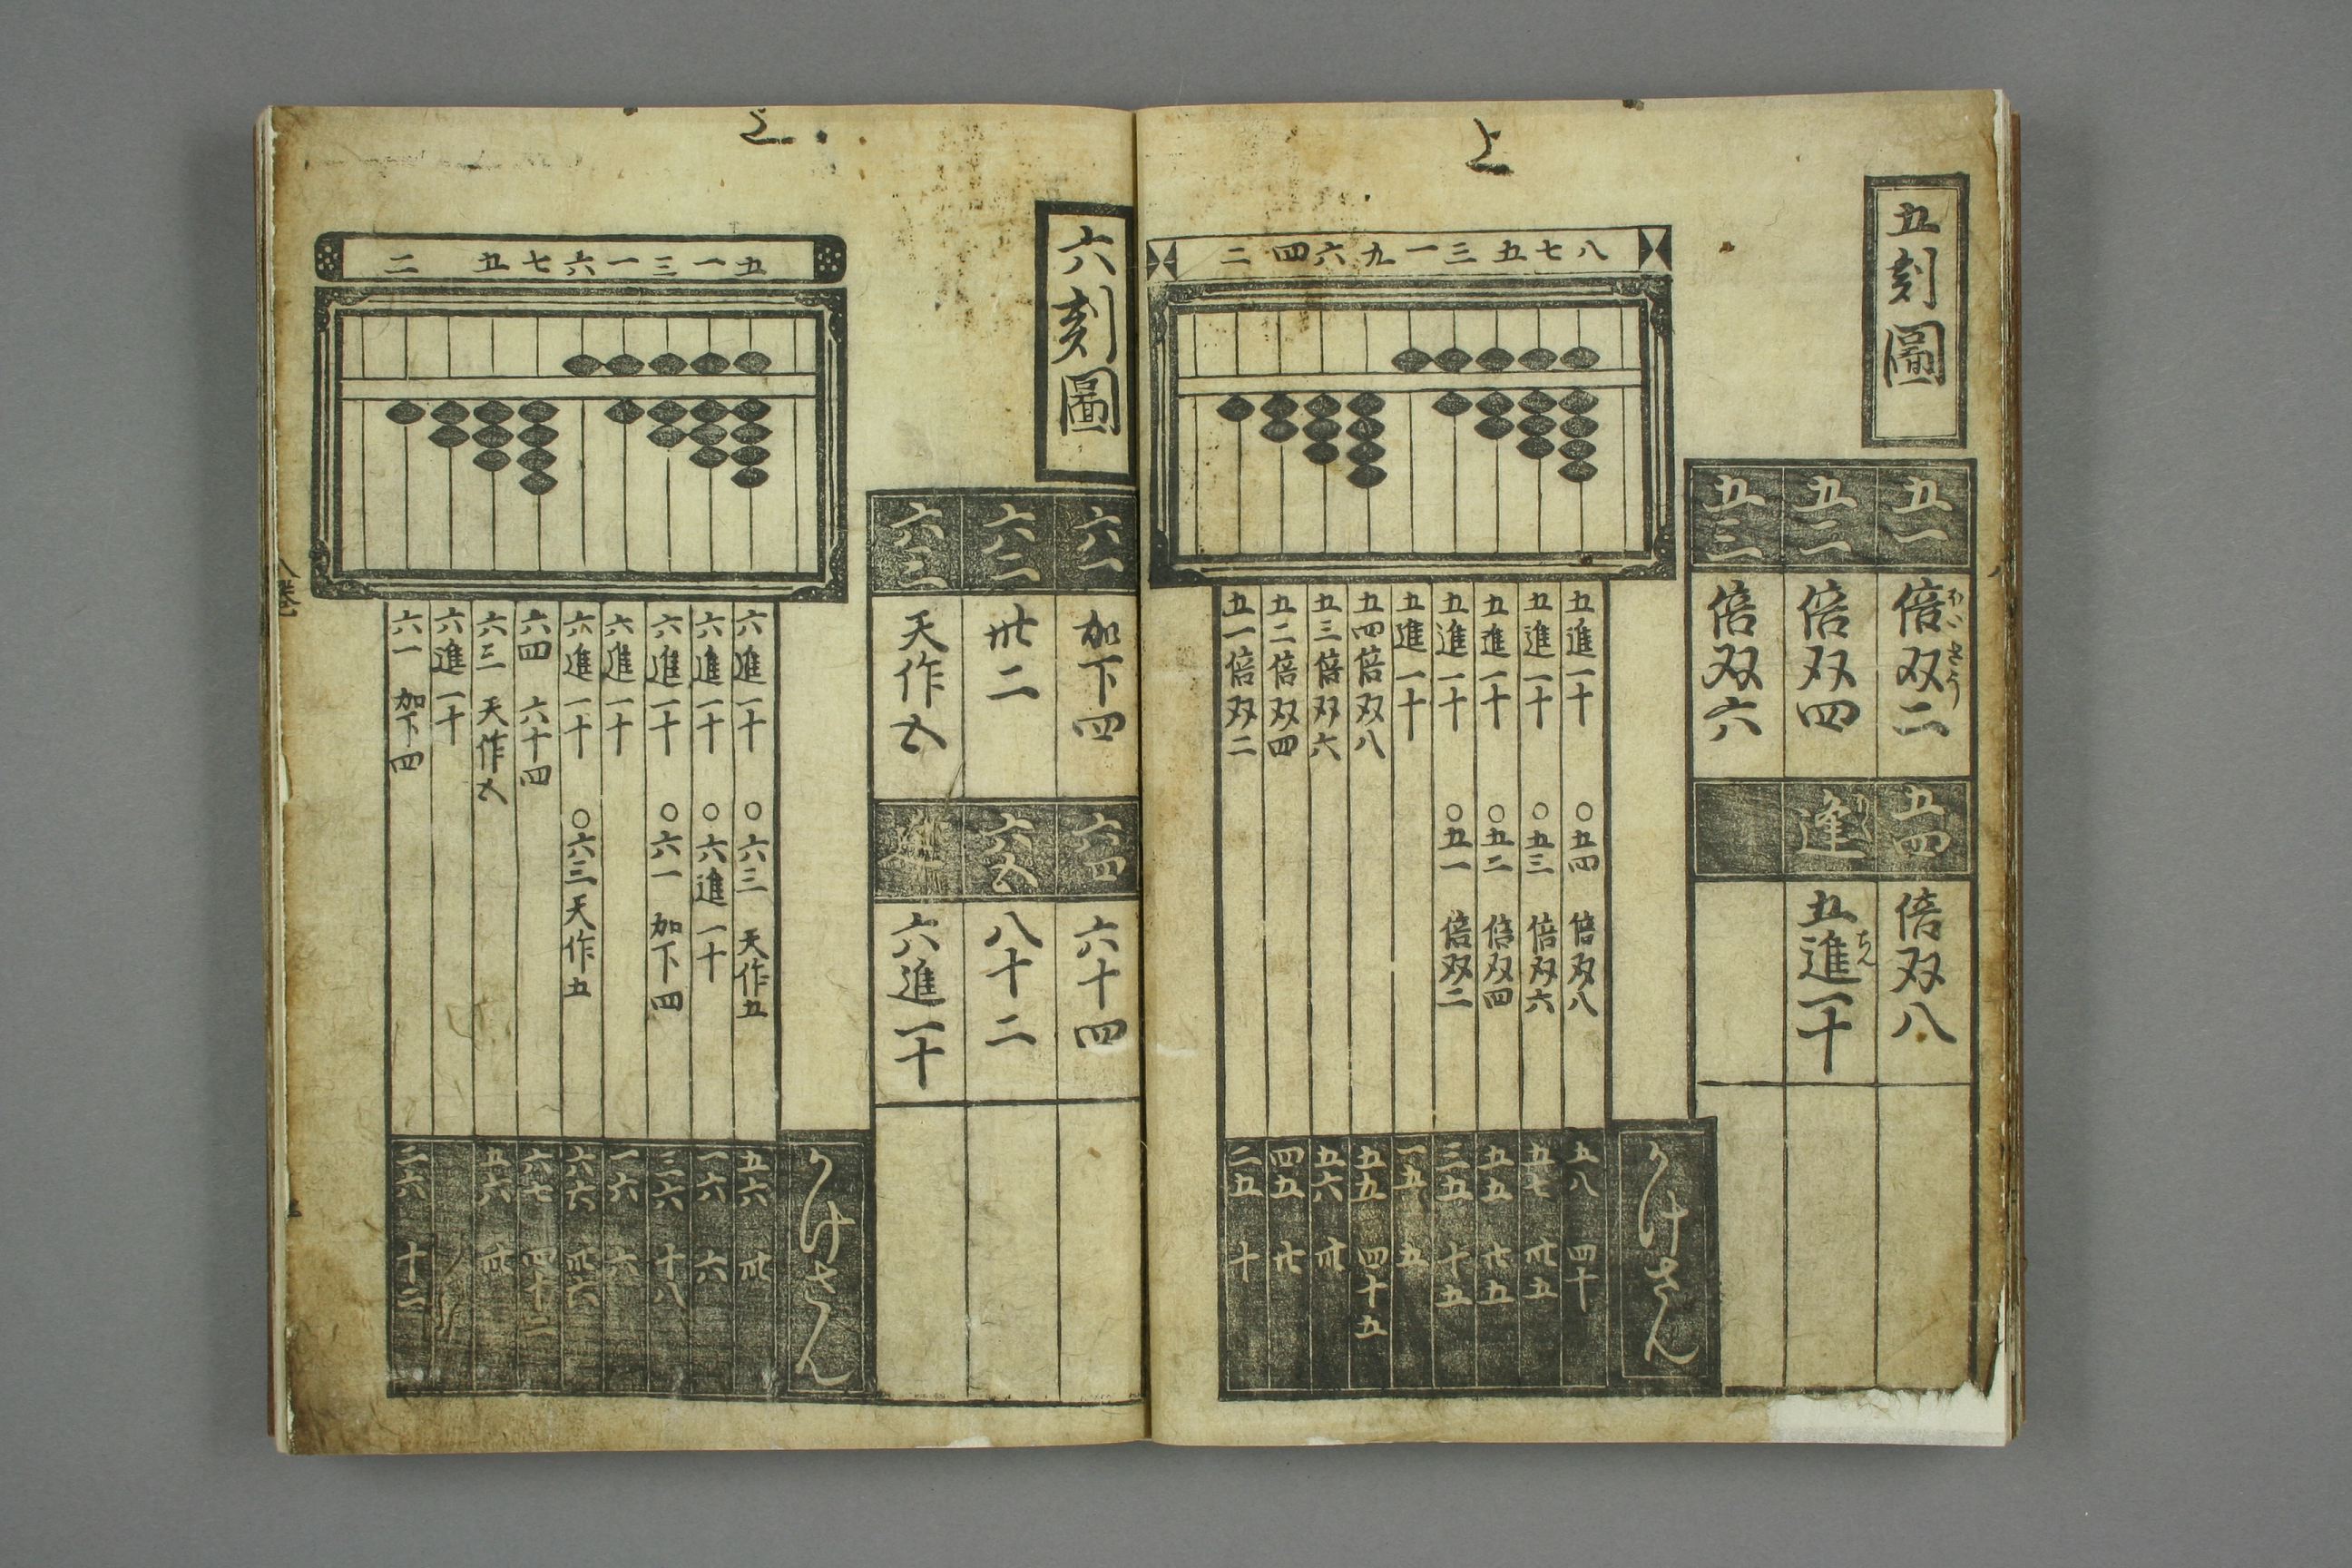 上
五刻圖
五一
倍双二
ばいさう
五二
倍双四
五三
倍双六
五四
倍双八
逢
五進一十
ちん
二四六九一三五七八
五進一十 〇五四 倍双八
五進一十 〇五三 倍双六
五進一十 〇五二 倍双四
五進一十 〇五一 倍双二
五進一十
五四倍双八
五三倍双六
五二倍双四
五一倍双二
かけさん
五八 四十
五七 卅五
五五 廿五
三五 十五
一五 五
五九 四十五
五六 卅
四五 廿
二五 十
上
六刻圖
六一
加下四
六二
卅二
六三
天作五
六四
六十四
六五
八十二
六進一十
二 五七六一三一五
六進一十 〇六三 天作五
六進一十 〇六進一十
六進一十 〇六一 加下四
六進一十
六進一十 〇六三天作五
六四 六十四
六三 天作五
六進一十
六一 加下四
かけさん
五六 卅
一六 六
三六 十八
一六 六
六六 卅六
六七 四十二
五六 卅
二六 十二
八巻